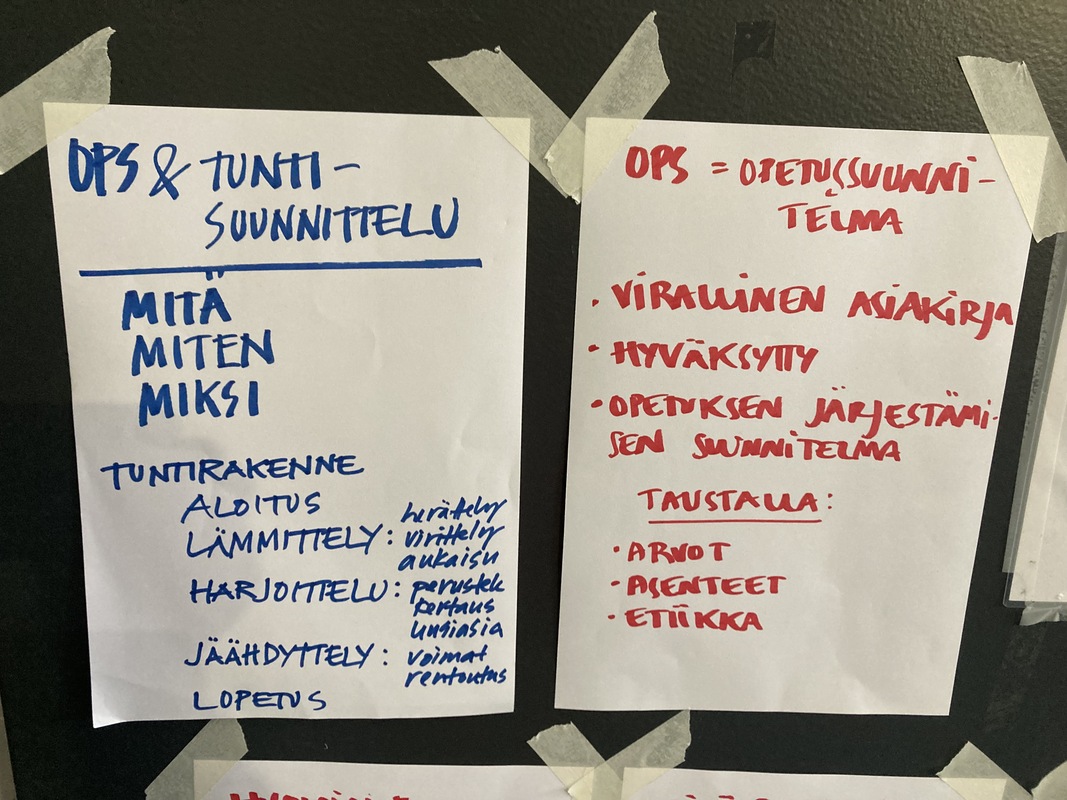 OPS & TUNTI-
SUUNNITTELU
MITÄ
MITEN
MIKSI
TUNTIRAKENNE
ALOITUS
LÄMMITTELY: herättely
virittely
aukaisu
HARJOITTELU: perustek
kertaus
uusiasia
JÄÄHDYTTELY: voimat
rentoutus
LOPETUS
OPS = OPETUSSUUNNI-
TELMA
• VIRALLINEN ASIAKIRJA
• HYVÄKSYTTY
• OPETUKSEN JÄRJESTÄMI-
SEN SUUNNITELMA
TAUSTALLA:
• ARVOT
• ASENTEET
• ETIIKKA